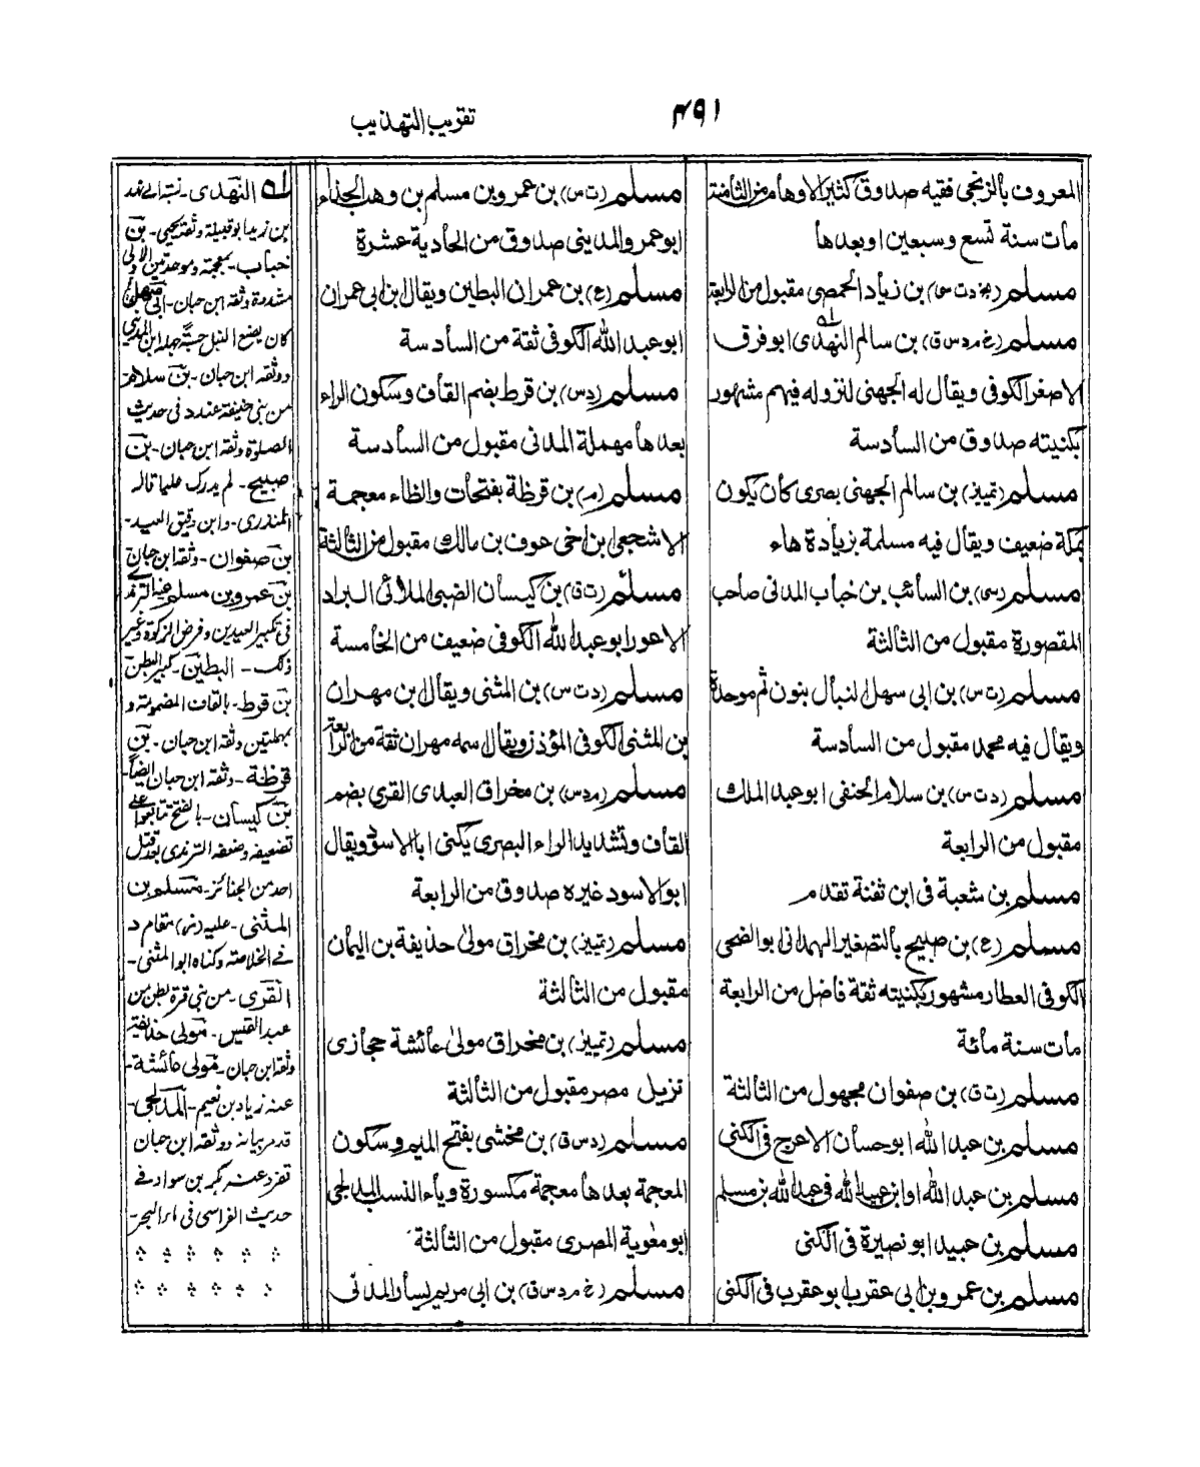 تقريب التهذيب
٤٩١
المعروف بالزنجى فقيه صدوق كثير الاوهام من الثامنة
مات سنة تسع وسبعين او بعدها
مسلم (بخ د ت س) بن زياد الحمصى مقبول من الرابعة
مسلم (خ م د س ق) بن سالم النهدى ابو فروة
الاصغر الكوفى ويقال له الجهنى لنزوله فيهم مشهور
بكنيته صدوق من السادسة
مسلم (تمييز) بن سالم الجهنى بصرى كان يكون
بمكة ضعيف ويقال فيه مسلمة بزيادة هاء
مسلم (سى) بن السائب بن خباب المدنى صاحب
المقصورة مقبول من الثالثة
مسلم (ت س) بن ابى سهل النبال بنون ثم موحدة
ويقال فيه محمد مقبول من السادسة
مسلم (د ت س) بن سلام الحنفى ابو عبد الملك
مقبول من الرابعة
مسلم بن شعبة فى ابن ثفنة تقدم
مسلم (ع) بن صبيح بالتصغير الهمدانى ابو الضحى
الكوفى العطار مشهور بكنيته ثقة فاضل من الرابعة
مات سنة مائة
مسلم (ت ق) بن صفوان مجهول من الثالثة
مسلم بن عبد الله ابو حسان الاعرج فى الكنى
مسلم بن عبد الله او ابن عبيد الله فى عبيد الله بن مسلم
مسلم بن عبيد ابو نصيرة فى الكنى
مسلم بن عمرو بن ابى عقرب ابو عقرب فى الكنى
مسلم (ت س) بن عمرو بن مسلم بن وهب الحذاء
ابو عمرو المدينى صدوق من الحادية عشرة
مسلم (ع) بن عمران البطين ويقال ابن ابى عمران
ابو عبد الله الكوفى ثقة من السادسة
مسلم (د س) بن قرط بضم القاف وسكون الراء
بعدها مهملة المدنى مقبول من السادسة
مسلم (م) بن قرظة بفتحات والظاء معجمة
الاشجعى ابن اخى عوف بن مالك مقبول من الثالثة
مسلم (ت ق) بن كيسان الضبى الملائى البراد
الاعور ابو عبد الله الكوفى ضعيف من الخامسة
مسلم (د ت س) بن المثنى ويقال ابن مهران
بن المثنى الكوفى المؤذن ويقال اسمه مهران ثقة من الرابعة
مسلم (م د س) بن مخراق العبدى القرى بضم
القاف وتشديد الراء البصرى يكنى ابا الاسود ويقال
ابو الاسود غيره صدوق من الرابعة
مسلم (تمييز) بن مخراق مولى حذيفة بن اليمان
مقبول من الثالثة
مسلم (تمييز) بن مخراق مولى عائشة حجازى
نزيل مصر مقبول من الثالثة
مسلم (د س ق) بن مخشى بفتح الميم وسكون
المعجمة بعدها معجمة مكسورة وياء النسب المدلجى
ابو معوية المصرى مقبول من الثالثة
مسلم (خ م د س ق) بن ابى مريم يسار المدنى
له النهدى - نسبة الى نهد
بن زيد ابو قبيلة وثقه يحيى - بن
خباب - بمعجمة وموحدتين الاولى
مشددة وثقه ابن حبان - ابى سهل
كان يضع النبل جهله ابن المدينى
ووثقه ابن حبان - بن سلام
من بنى حنيفة عنده فى حديث
الصلوة وثقه ابن حبان - بن
صبيح - لم يدرك عليا قاله
المنذرى - وابن دقيق العيد -
بن صفوان - وثقه ابن حبان
بن عمرو بن مسلم الترمذى
فى تكبير العيدين وفرض الزكوة وغير
ذلك - البطين - كبير البطن
بن قرط - بالقاف المضمومة و
بمهملتين وثقه ابن حبان - بن
قرظة - وثقه ابن حبان ايضا -
بن كيسان - بالفتح تتابعوا على
تضعيفه وضعفه الترمذى بعد قتل
احد من الجنائز - مسلم بن
المثنى - عليه (نز) مقام د
فى الخلاصة وكناه ابو المثنى -
القرى - من بنى قرة بطن من
عبد القيس - مولى حذيفة
وثقه ابن حبان - مولى عائشة -
عنه زياد بن نعيم - المدلجى -
قد مر بيانه ووثقه ابن حبان
تفرد عنه بكر بن سوادة فى
حديث الفراسى فى ماء البحر -